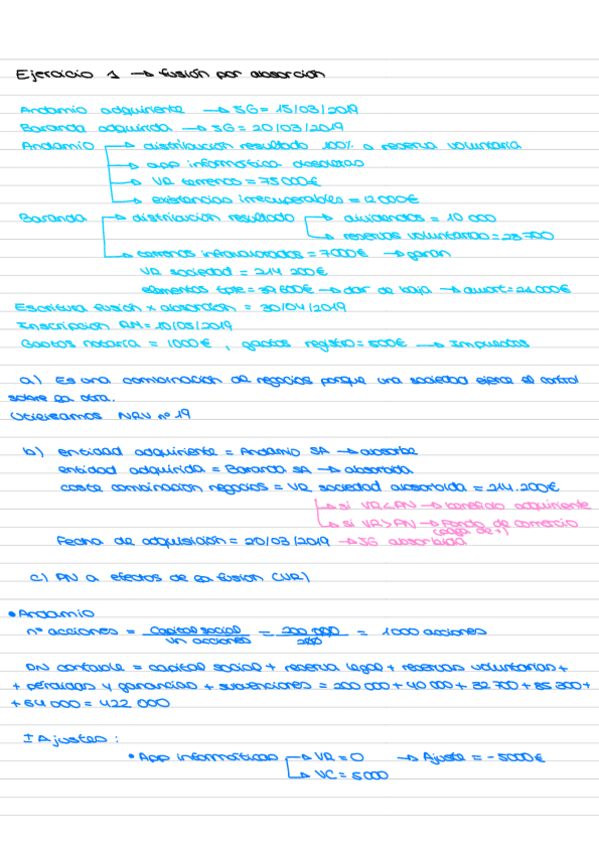 Ejercicio 1 → fusión por absorción
Andamio adquiriente → JG = 15/03/2019
Baranda adquirida → JG = 20/03/2019
Andamio → distribución resultado 100% a reserva voluntaria
→ app informática obsoletas
→ VR terrenos = 75 000€
→ existencias irrecuperables = 12 000€
Baranda → distribución resultado → dividendos = 10 000
→ reservas voluntarias = 23 700
→ terrenos infravalorados = 7000€ → ganan
VR sociedad = 214 200€
elementos tpte = 39 600€ → dar de baja → amort = 24 000€
Escritura fusión x absorción = 30/04/2019
Inscripción RM = 10/05/2019
Gastos notaría = 1000€, gastos registro = 500€ → Impuestos
a) Es una combinación de negocios porque una sociedad ejerce el control
sobre la otra.
Utilizamos NRV nº 19
b) entidad adquiriente = Andamio SA → absorbe
entidad adquirida = Baranda SA → absorbida
coste combinación negocios = VR sociedad absorbida = 214.200€
→ si VR<PN → beneficio adquiriente
→ si VR>PN → Fondo de comercio
Fecha de adquisición = 20/03/2019 → JG absorbida
c) PN a efectos de la fusión (VR)
• Andamio
nº acciones = Capital social / VN acciones = 200 000 / 200 = 1000 acciones
PN contable = capital social + reserva legal + reservas voluntarias +
+ pérdidas y ganancias + subvenciones = 200 000 + 40 000 + 32 700 + 85 300 +
+ 64 000 = 422 000
± Ajustes:
• App informáticas → VR = 0 → Ajuste = -5000€
→ VC = 5000